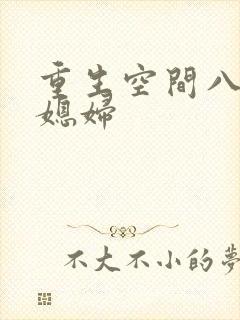 重生空間八
媳婦
不大不小的夢